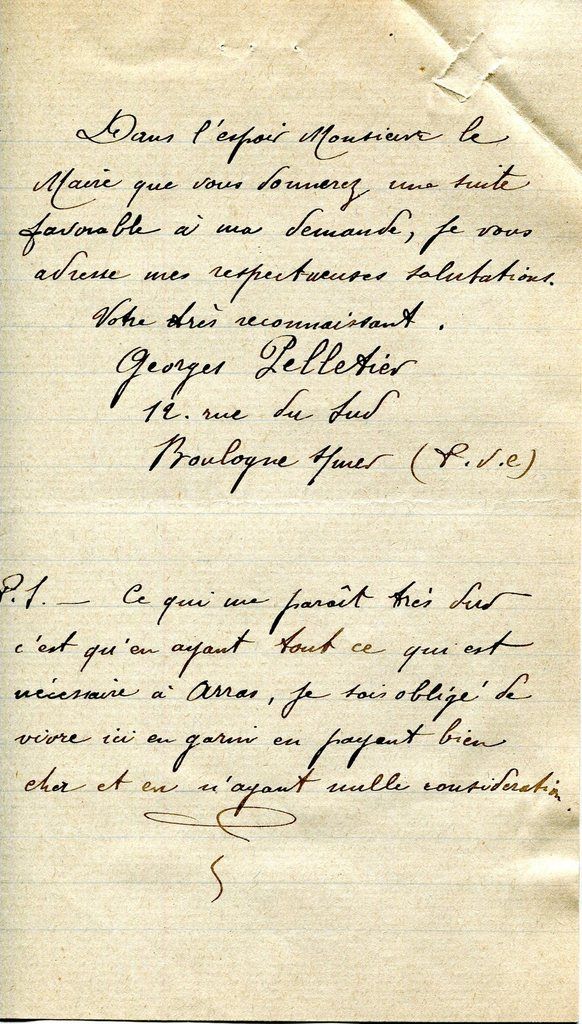 Dans l'espoir Monsieur le
Maire que vous donnerez une suite
favorable à ma demande, je vous
adresse mes respectueuses salutations.
Votre très reconnaissant.
Georges Pelletier
12. rue du Sud
Boulogne s/mer (P.d.C)
P.S. — Ce qui me paraît très dur
c'est qu'en ayant tout ce qui est
nécessaire à Arras, je sois obligé de
vivre ici en garni en payant bien
cher et en n'ayant nulle considération.